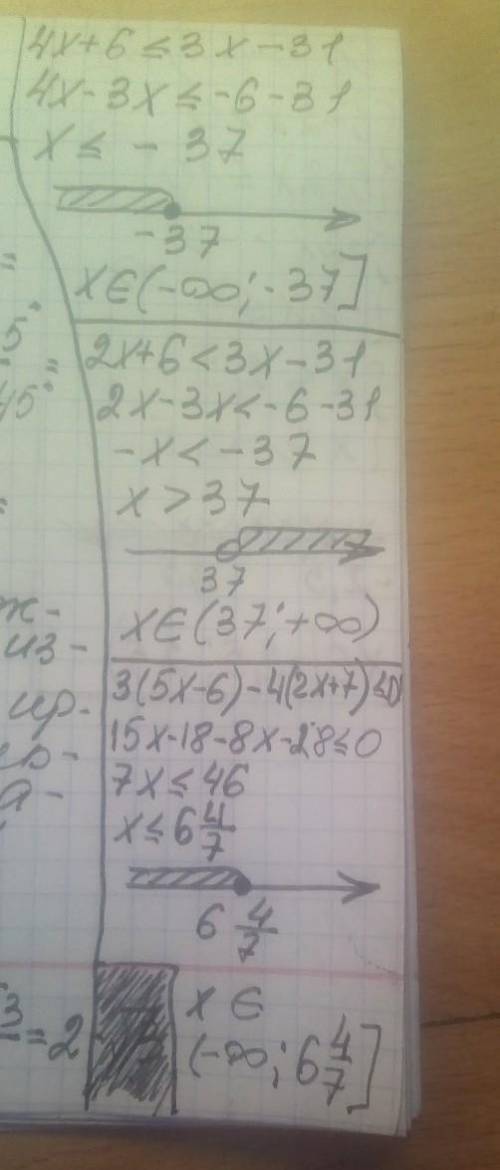 4x+6≤3x-31
4x-3x≤-6-31
x≤-37
-37
x∈(-∞;-37]
2x+6<3x-31
2x-3x<-6-31
-x<-37
x>37
37
x∈(37;+∞)
3(5x-6)-4(2x+7)≤0
15x-18-8x-28≤0
7x≤46
x≤6 4/7
6 4/7
x∈
(-∞;6 4/7]
=
45°
=
из-
=2